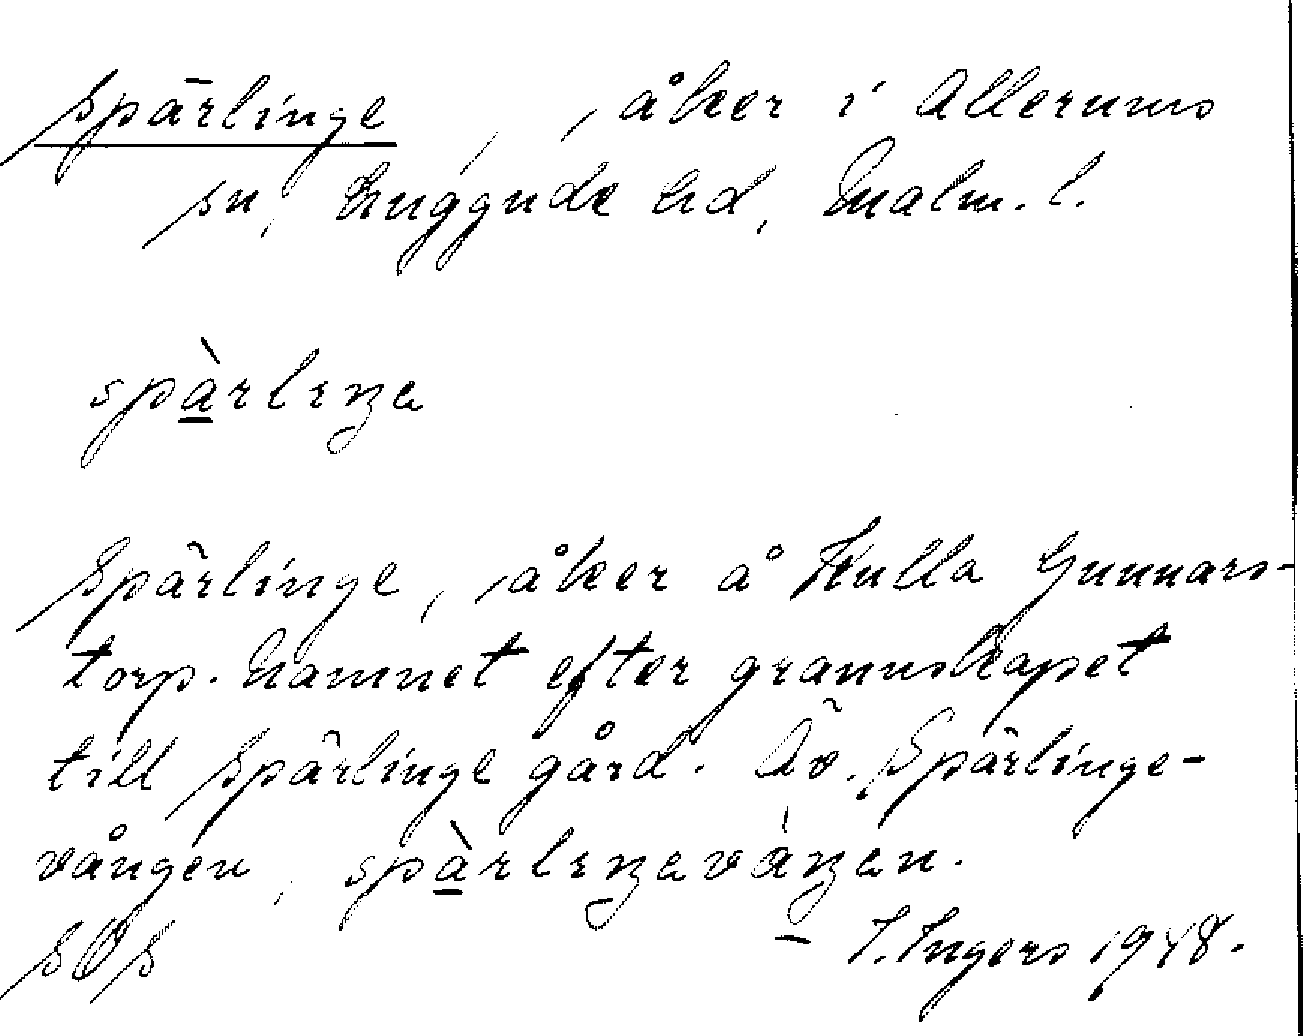 Spärlinge, åker i Allerums
sn, Luggude hd, Malm. l.
spàrlıŋa
Spärlinge, åker å Kulla Gunnars-
torp. Namnet efter grannskapet
till Spärlinge gård. Äv. Spärlinge-
vången, spàrlıŋavàŋan.
SOS I. Ingers 1948.